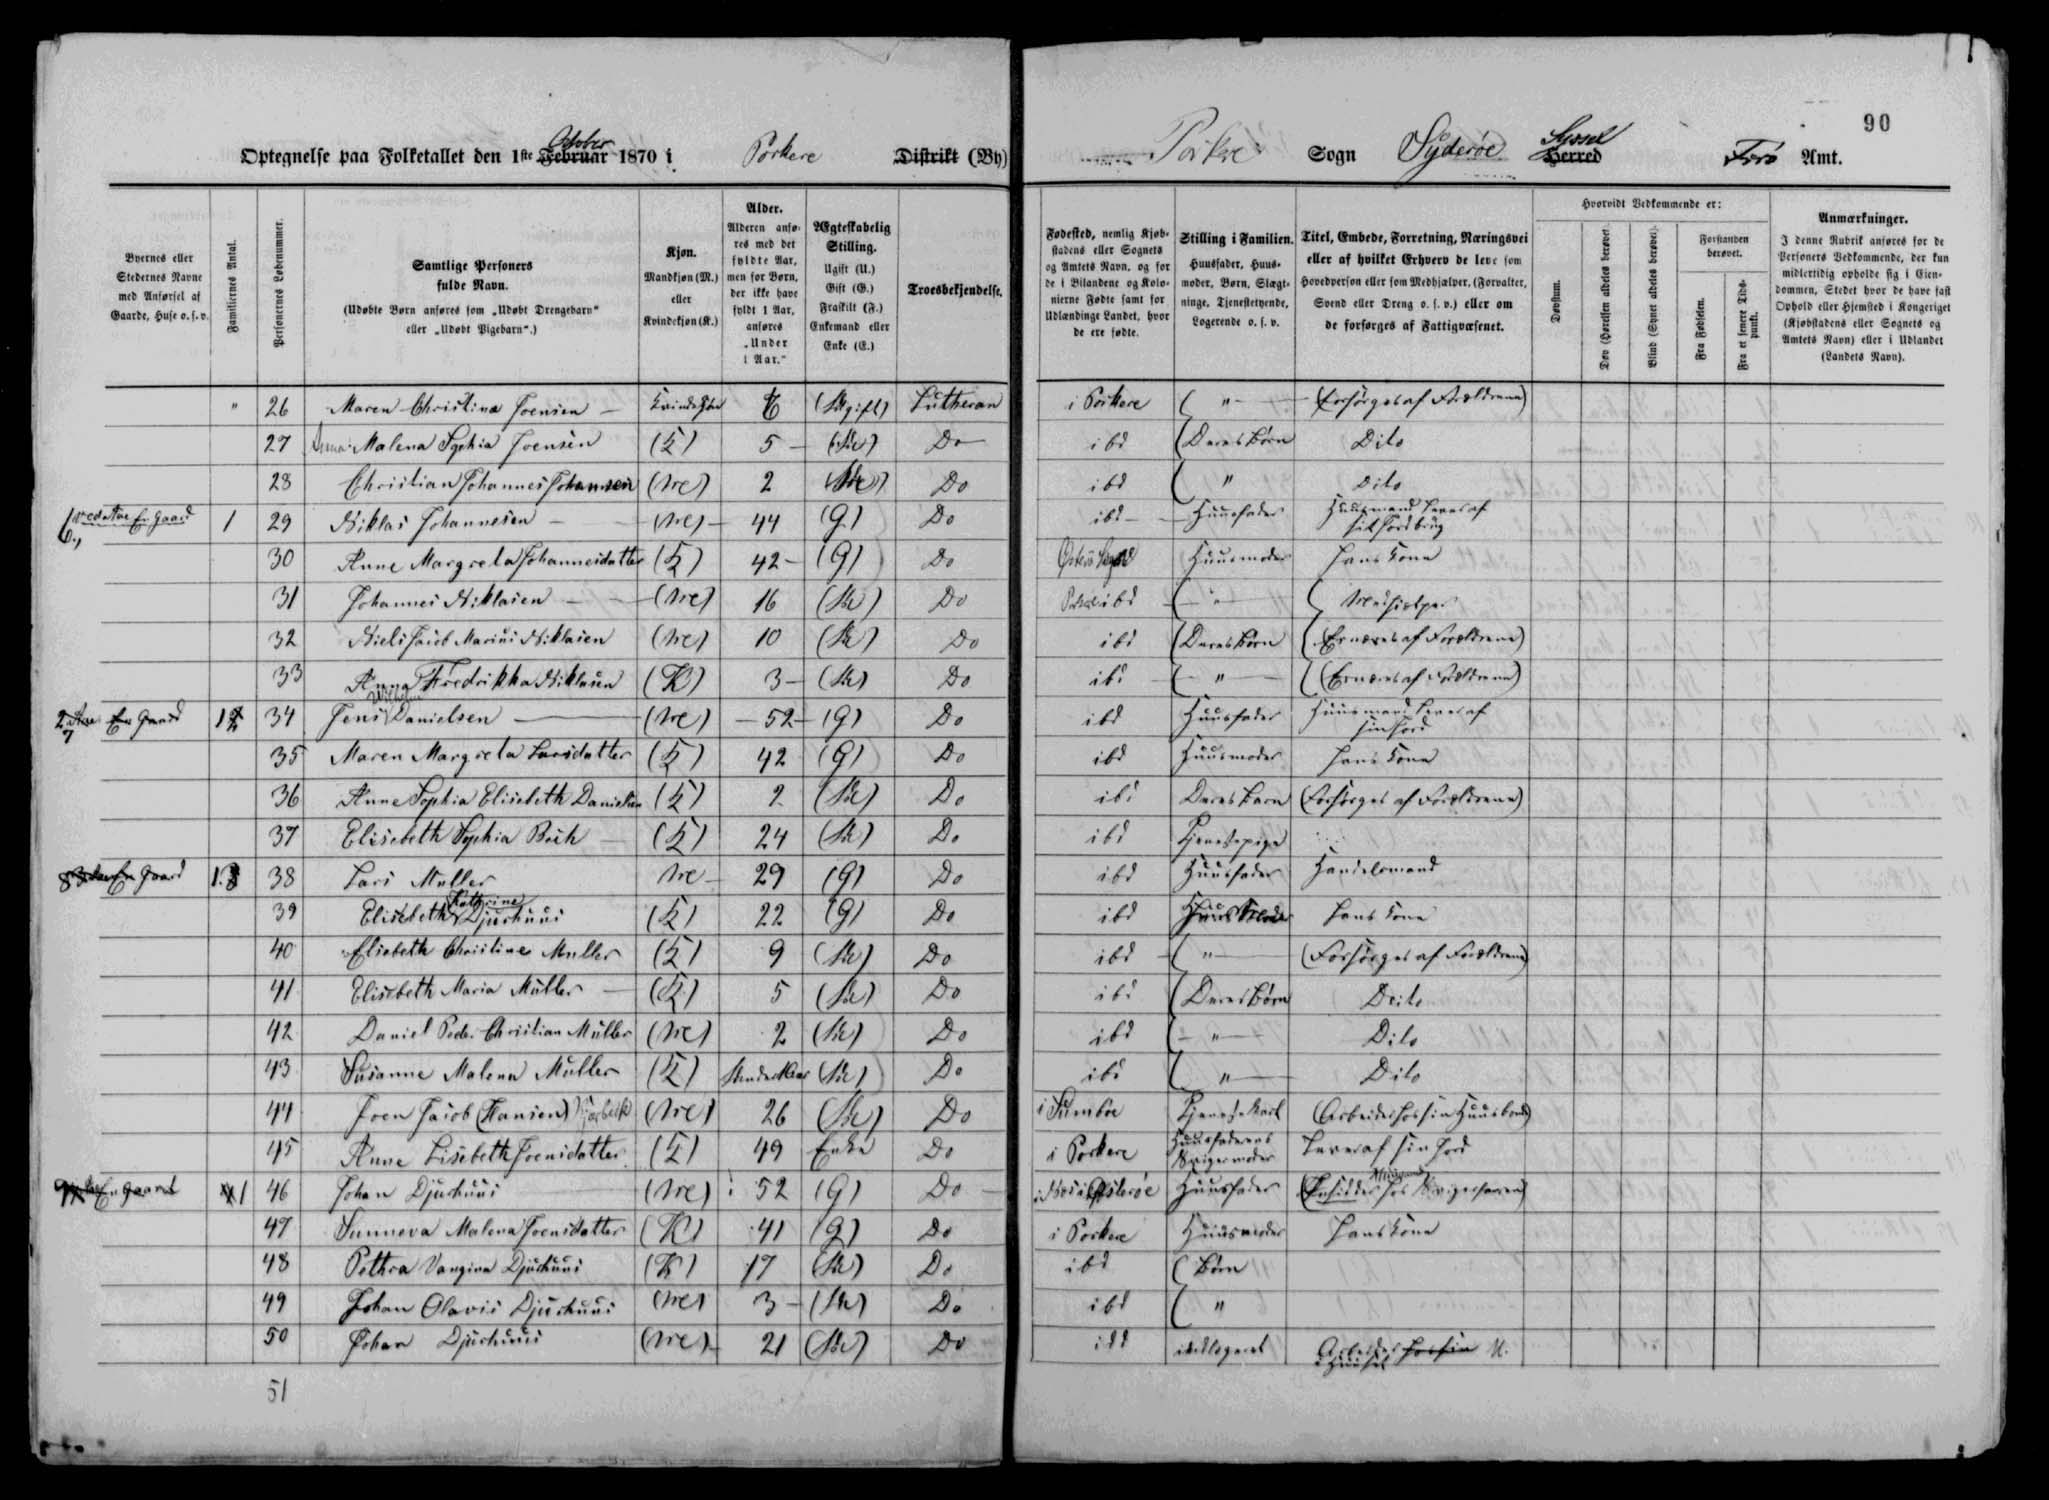 90
Optegnelse paa Folketallet den 1ste October Februar 1870 i Porkere Distrikt (By) Porkere Sogn Syderöe Syssel Herred Færö Amt.
Byernes eller Stedernes Navne med Anførsel af Gaarde, Huse o. s. v.
Familiernes Antal.
Personernes Løbenummer.
Samtlige Personers fulde Navn. (Udøbte Børn anføres som „Udøbt Drengebarn“ eller „Udøbt Pigebarn“.)
Kjøn. Mandkjøn (M.) eller Kvindekjøn (K.)
Alder. Alderen anføres med det fyldte Aar, men for Børn, der ikke have fyldt 1 Aar, anføres „Under 1 Aar.“
Ægteskabelig Stilling. Ugift (U.) Gift (G.) Fraskilt (F.) Enkemand eller Enke (E.)
Troesbekjendelse.
Fødested, nemlig Kjøbstadens eller Sognets og Amtets Navn, og for de i Bilandene og Kolonierne Fødte samt for Udlændinge Landet, hvor de ere fødte.
Stilling i Familien. Huusfader, Huusmoder, Børn, Slægtninge, Tjenestetyende, Logerende o. s. v.
Titel, Embede, Forretning, Næringsvei eller af hvilket Erhverv de leve som Hovedperson eller som Medhjælper, (Forvalter, Svend eller Dreng o. s. v.) eller om de forsørges af Fattigvæsenet.
Hvorvidt Vedkommende er:
Døvstum.
Døv (Hørelsen aldeles berøvet.
Blind (Synet aldeles berøvet).
Forstanden berøvet.
Fra Fødselen.
Fra et senere Tidspunkt.
Anmærkninger. I denne Rubrik anføres for de Personers Vedkommende, der kun midlertidig opholde sig i Eiendommen, Stedet hvor de have fast Ophold eller Hjemsted i Kongeriget (Kjøbstadens eller Sognets og Amtets Navn) eller i Udlandet (Landets Navn).
" 26 Maren Christina Joensen Kvindekjøn (Ugift) Lutheran i Porkere " (Forsörges af Forældrene)
27 Malena Sophia Joensen (K) 5 (U) Do ibd Deres Börn Dito
28 Christian Johannes Johannesen (M) 2 (U) Do ibd " Dito
En Gaard 1 29 Niklas Johannesen (M) 44 (G) Do ibd Huusfader Huusmand Lever af sit Jordbrug
30 Anne Margreta Johannesdatter (K) 42 (G) Do Huusmoder hans Kone
31 Johannes Niklasen (M) 16 (U) Do ibd " Medhjelper
32 Niels Jacob Marius Niklasen (M) 10 (U) Do ibd Deres Börn (Ernæres af Forældrene)
33 Anna Fredrikka Niklasen (K) 3 (U) Do ibd " (Ernæres af Forældrene)
En Gaard 1 34 Jens Danielsen (M) 52 (G) Do ibd Huusfader Huusmand Lever af sin Jord
35 Maren Margreta Larsdatter (K) 42 (G) Do ibd Huusmoder hans Kone
36 Anne Sophia Elisebeth Danielsen (K) 2 (U) Do ibd Deres Barn (Forsörges af Forældrene)
37 Elisebeth Sophia Bech (K) 24 (U) Do ibd Tjenestepige
En Gaard 1 38 Lars Muller M 29 (G) Do ibd Huusfader Handelsmand
39 Elisebeth Kathrine Djurhuus (K) 22 (G) Do ibd Huus Moder hans Kone
40 Elisebeth Christine Muller (K) 9 (U) Do ibd " (Forsörges af Forældrene)
41 Elisebeth Maria Müller (K) 5 (U) Do ibd Deres Börn Dito
42 Daniel Peder Christian Müller (M) 2 (U) Do ibd " Dito
43 Susanne Malena Müller (K) Under 1 Aar (U) Do ibd " Dito
44 Joen Jacob (Hansen) (M) 26 (U) Do i Sumböe Tjenestekarl (Arbeider hos sin Huusbond)
45 Anne Lisebeth Joensdatter (K) 49 Enke Do i Porkere Huusfaderens Svigermoder Lever af sin Jord
En Gaard 1 46 Johan Djurhuus (M) 52 (G) Do Österöe Huusfader hos Svigersönnen)
47 Sunneva Malena Joensdatter (K) 41 (G) Do i Porkere Huusmoder hans Kone
48 Pethra Vangina Djurhuus (K) 17 (U) Do ibd Börn
49 Johan Olavis Djurhuus (M) 3 (U) Do ibd "
50 Johan Djurhuus (M) 21 (U) Do ibd Arbeider hos sin
51